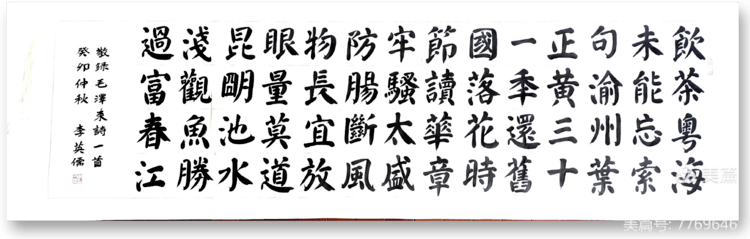 飲茶粵海
未能忘索
句渝州葉
正黄三十
一秊還舊
國落花時
節讀華章
牢騷太盛
防腸斷風
物長宜放
眼量莫道
昆眀池水
淺觀魚勝
過富春江
敬録毛澤东詩一首
癸卯仲秋 李英儒
美篇
美篇号: 7769646